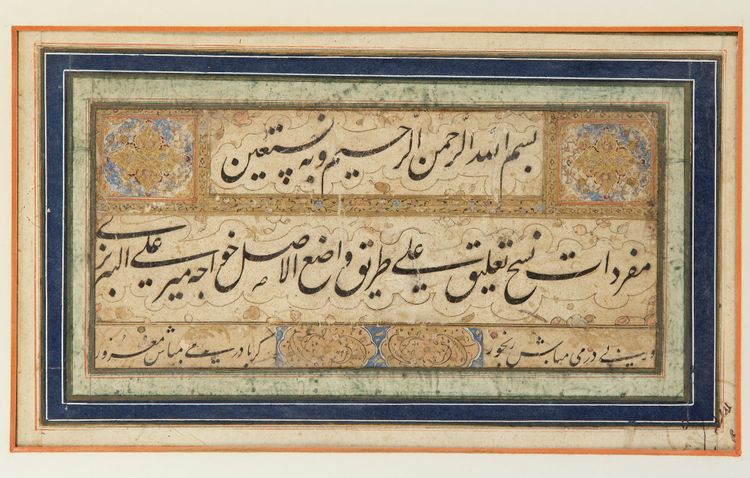 بسم الله الرحمن الرحیم و به نستعین
مفردات نسخ تعلیق علی طریق واضع الاصل خواجه میر علی التبریزی
ور بی درمی مباش رنجور کر با درمی مباش مغرور